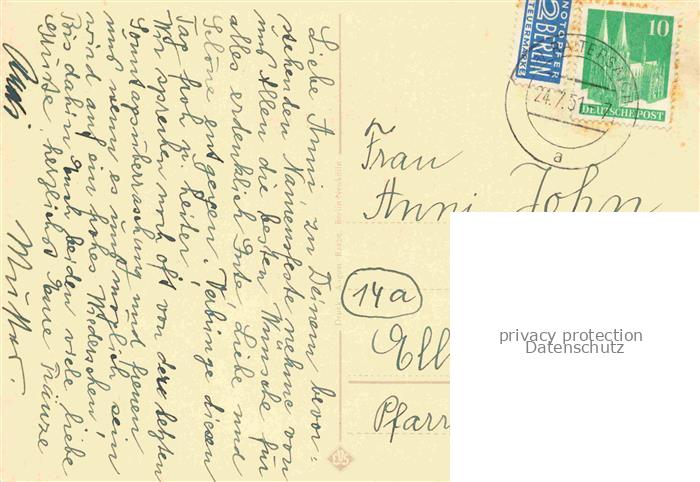 Liebe Anni, zu Deinem bevor-
stehenden Namensfeste nehme von
uns Allen die besten Wünsche für
alles erdenklich Gute, Liebe und
Schöne entgegen. Verbringe diesen
Tag froh u. heiter!
Wir sprechen noch oft von der letzten
Sonntagsüberraschung und freuen
uns wenn es möglich sein
wird auf ein frohes Wiedersehen!
Bis dahin Euch beiden viele liebe
Grüsse, herzlichst
Mutter.
NOTOPFER
2 BERLIN
STEUERMARKE
10
DEUTSCHE POST
24.7.5
a
Frau
Anni John
14a
Ell
Pfarr
privacy protection
Datenschutz